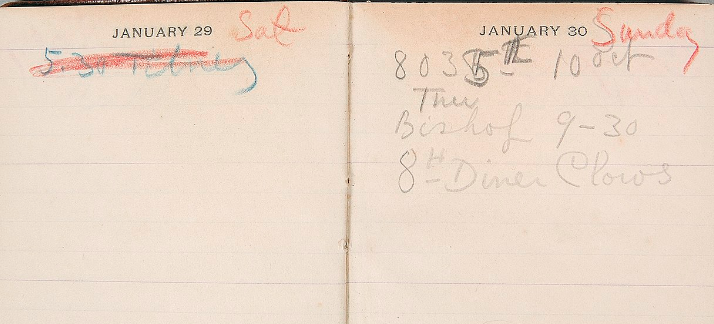 JANUARY 29 Sat
5.30
JANUARY 30 Sunday
8035 10 oct
Thu
Bishop 9-30
8H Diner Clows